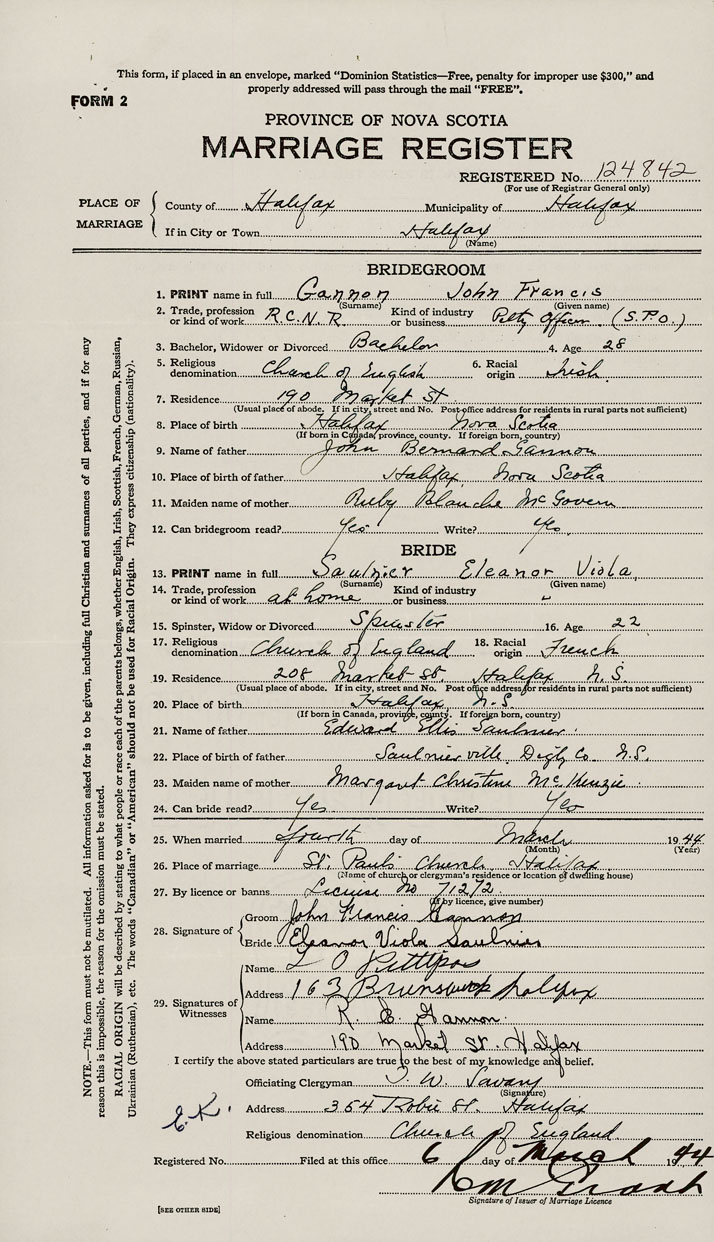 This form, if placed in an envelope, marked "Dominion Statistics—Free, penalty for improper use $300," and
properly addressed will pass through the mail "FREE".
FORM 2
PROVINCE OF NOVA SCOTIA
MARRIAGE REGISTER
REGISTERED No. 124842
(For use of Registrar General only)
PLACE OF MARRIAGE
County of Halifax Municipality of Halifax
If in City or Town Halifax
(Name)
BRIDEGROOM
1. PRINT name in full Gannon John Francis
(Surname) (Given name)
2. Trade, profession or kind of work R.C.N.R. Kind of industry or business Petty Officer (S.P.O.)
3. Bachelor, Widower or Divorced Bachelor 4. Age 28
5. Religious denomination Church of English 6. Racial origin Irish
7. Residence 190 Market St.
(Usual place of abode. If in city, street and No. Post office address for residents in rural parts not sufficient)
8. Place of birth Halifax Nova Scotia
(If born in Canada, province, county. If foreign born, country)
9. Name of father John Bernard Gannon
10. Place of birth of father Halifax, Nova Scotia
11. Maiden name of mother Ruby Blanche McGovern
12. Can bridegroom read? Yes Write? Yes
BRIDE
13. PRINT name in full Saulnier Eleanor Viola
(Surname) (Given name)
14. Trade, profession or kind of work at home Kind of industry or business "
15. Spinster, Widow or Divorced Spinster 16. Age 22
17. Religious denomination Church of England 18. Racial origin French
19. Residence 208 Market St. Halifax N.S.
(Usual place of abode. If in city, street and No. Post office address for residents in rural parts not sufficient)
20. Place of birth Halifax N.S.
(If born in Canada, province, county. If foreign born, country)
21. Name of father Edward Ellis Saulnier
22. Place of birth of father Saulnierville, Digby Co. N.S.
23. Maiden name of mother Margaret Christine McKenzie
24. Can bride read? Yes Write? Yes
25. When married fourth day of March 1944
(Month) (Year)
26. Place of marriage St. Paul's Church, Halifax
(Name of church or clergyman's residence or location of dwelling house)
27. By licence or banns License No 71272
(If by licence, give number)
28. Signature of
Groom John Francis Gannon
Bride Eleanor Viola Saulnier
29. Signatures of Witnesses
Name L O Pettipas
Address 163 Brunswick Halifax
Name R. E. Gannon
Address 190 Market St. Halifax
I certify the above stated particulars are true to the best of my knowledge and belief.
Officiating Clergyman T. W. Savary
(Signature)
Address 354 Robie St. Halifax
Religious denomination Church of England
Registered No. Filed at this office 6 day of March 1944
Signature of Issuer of Marriage Licence
[SEE OTHER SIDE]
NOTE.—This form must not be mutilated. All information asked for is to be given, including full Christian and surnames of all parties, and if for any
reason this is impossible, the reason for the omission must be stated.
RACIAL ORIGIN will be described by stating to what people or race each of the parents belongs, whether English, Irish, Scottish, French, German, Russian,
Ukrainian (Ruthenian), etc. The words "Canadian" or "American" should not be used for Racial Origin. They express citizenship (nationality).